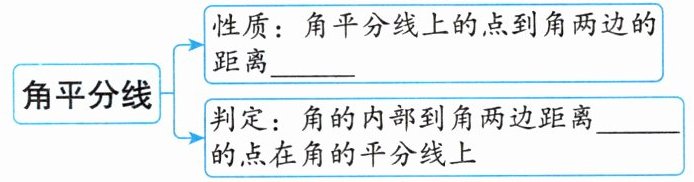 角平分线
性质：角平分线上的点到角两边的
距离______
判定：角的内部到角两边距离______
的点在角的平分线上